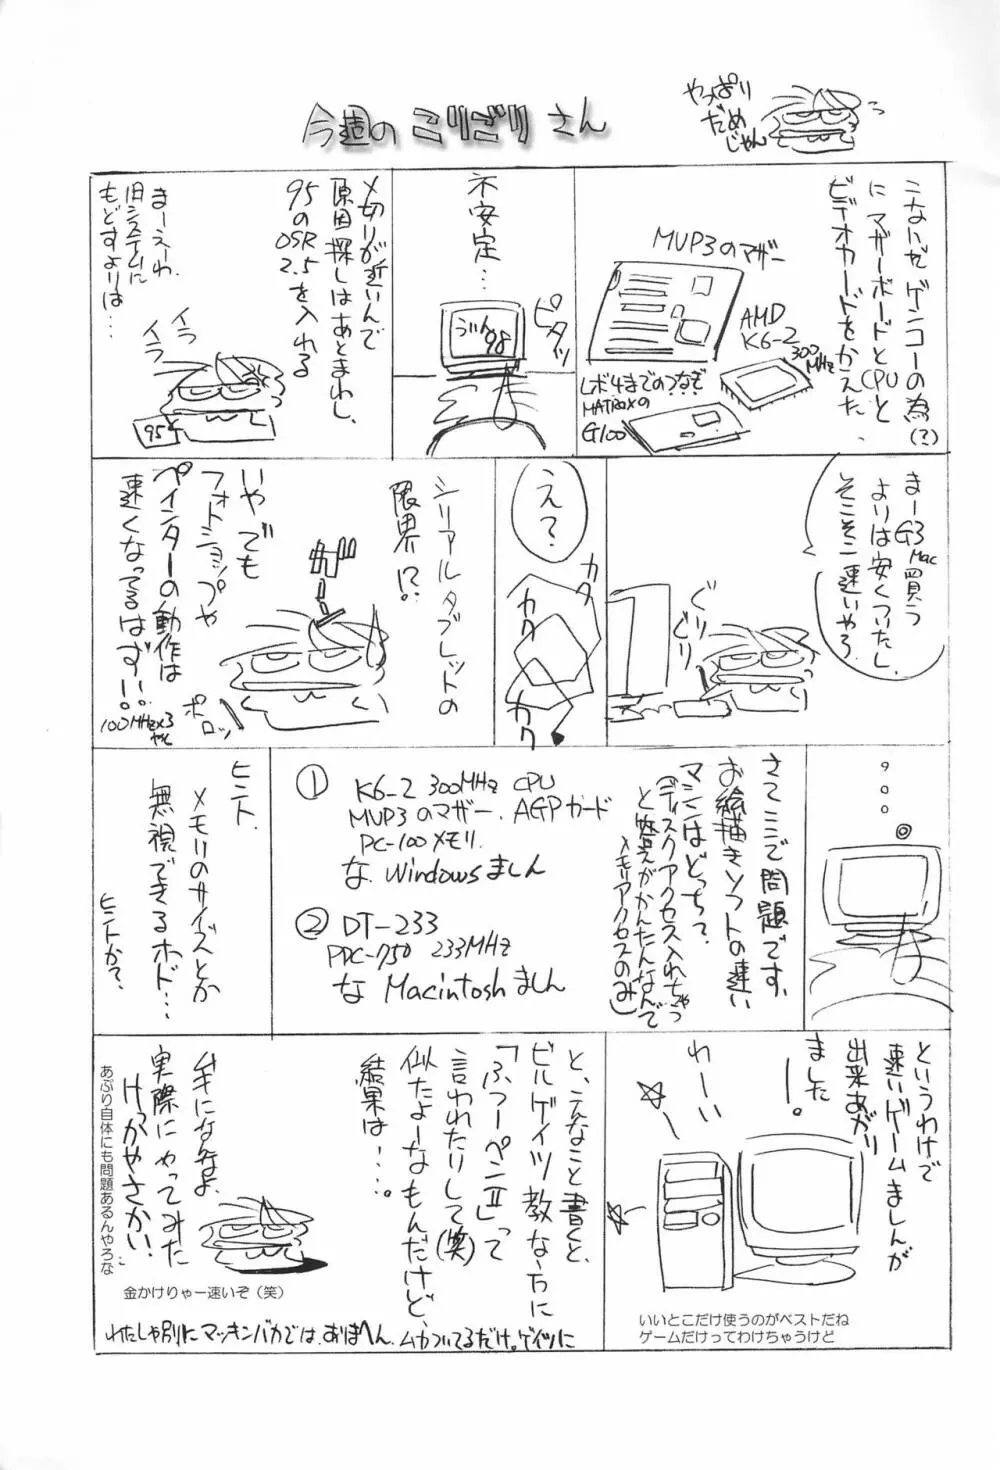 今週の こりごり さん
やっぱり
だめ
じゃん
こないだ ゲンコーの為(?)
に マザーボードとCPUと
ビデオカードをかえた
MVP3のマザー
AMD
K6-2
300MHz
レボ4までのつなぎ
MATROXの
G100
不安定…
ういん98
ピタッ
〆切りが近いんで
原因探しはあとまわし、
95のOSR2.5を入れる
まーえーわ、
旧システムに
もどすよりは…
イラ
イラ
95
まーG3 Mac買う
よりは安くついたし、
そこそこ速いやろ
ぐりぐり
え?
カク
カク
カク
シリアルタブレットの
限界!?
いやでも
フォトショップや
ペインターの動作は
速くなってるはず!!
100MHz×3
やし
ポロッ
さてここで問題です、
お絵描きソフトの速い
マシンはどっち?
(ディスクアクセス入れちゃう
と答えがかんたんなんで
メモリアクセスのみ)
① K6-2 300MHz CPU
MVP3のマザー、AGPカード
PC-100メモリ
な Windowsましん
② DT-233
PPC-750 233MHz
な Macintoshましん
ヒント、
メモリのサイズとか
無視できるホド…
ヒントか?
というわけで
速いゲームましんが
出来あがり
ましたー。
わーい
いいとこだけ使うのがベストだね
ゲームだけってわけちゃうけど
と、こんなこと書くと、
ビルゲイツ教な方に
「ふつーペンⅡ」って
言われたりして(笑)
似たよーなもんだけど、
結果は…。
ムキになんなよ、
実際にやってみた
けっかやさかい!
あぷり自体にも問題あるんやろな
金かけりゃー速いぞ（笑）
わたしゃ別にマッキンバカでは、おまへん、ムカついてるだけ。ゲイツに